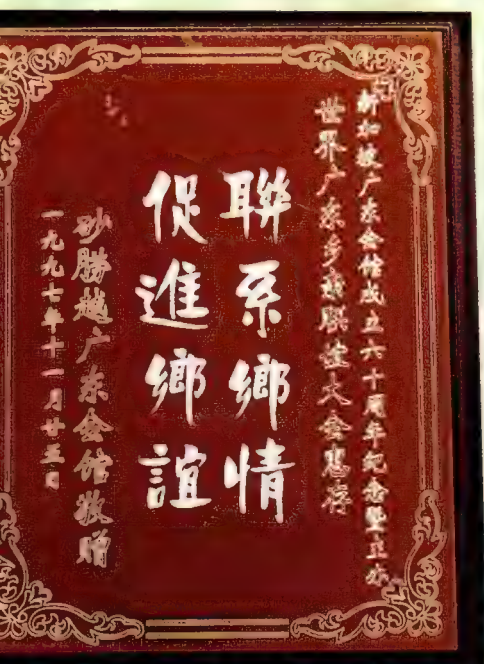 新加坡广东会馆成立六十周年纪念暨主办
世界广东乡亲联谊大会惠存
聯系鄉情
促進鄉誼
砂朥越广东会馆敬贈
一九九七年十一月廿五日